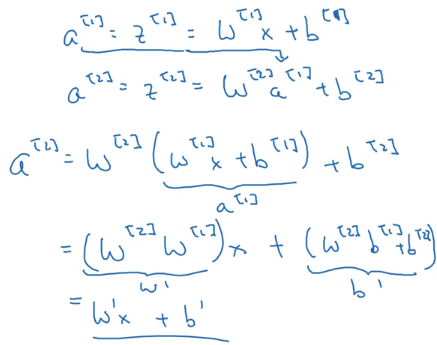 a^[1] = z^[1] = W^[1] x + b^[1]
a^[2] = z^[2] = W^[2] a^[1] + b^[2]
a^[2] = W^[2] (W^[1] x + b^[1]) + b^[2]
a^[1]
= (W^[2] W^[1]) x + (W^[2] b^[1] + b^[2])
W' b'
= W' x + b'